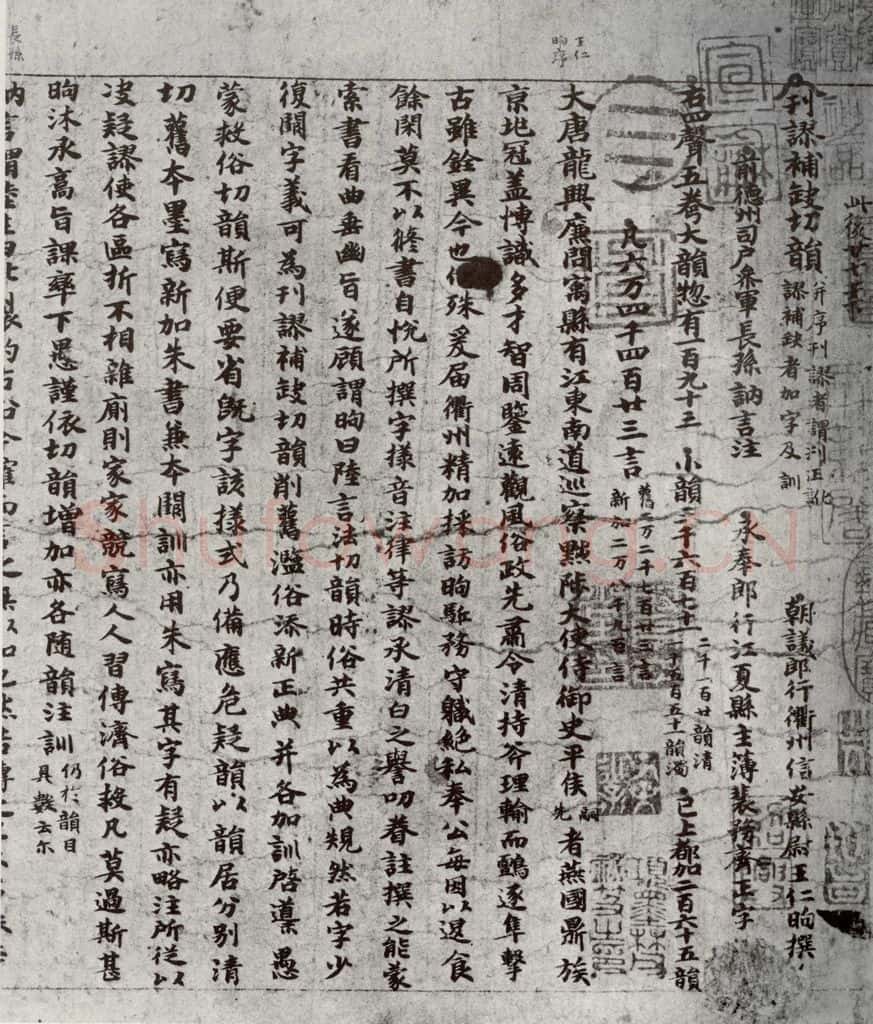 刊謬補缺切韻 并序刊謬者謂刊正訛謬補缺者加字及訓 朝議郎行衢州信安縣尉王仁昫撰
前德州司戶參軍長孫訥言注 承奉郎行江夏縣主簿裴務齊正字
右四聲五卷大韻惣有一百九十三 小韻三千六百七十一 二千一百廿韻清一千五百五十一韻濁 已上都加二百六十五韻
凡六万四千四百廿三言 舊二万二千七百廿三言新加二万八千九百言
大唐龍興廉問寓縣有江東南道巡察黜陟大使侍御史平侯嗣先者燕國鼎族
京兆冠盖博識多才智周鑒遠觀風俗政先肅令清持斧理輪而鸇逐隼擊
古雖銓異今也何殊爰届衢州精加採訪昫馹務守軄絶私奉公每因以退食
餘閑莫不以修書自悦所撰字樣音注律等認承清白之譽叨眷註撰之能蒙
索書看曲垂幽旨遂顧謂昫曰陸言法切韻時俗共重以為典規然若字少
復闕字義可為刊謬補缺切韻削舊濫俗添新正典并各加訓啓導愚
蒙救俗切韻斯便要省既字該樣式乃備應危疑韻以韻居分别清
切舊本墨寫新加朱書兼本闕訓亦用朱寫其字有疑亦略注所從以
决疑謬使各區折不相雜廁則家家競寫人人習傳濟俗救凡莫過斯甚
昫沐承高旨課率下愚謹依切韻增加亦各随韻注訓 仍於韻目具數云尔
訥言謂陸生
王仁昫序
長孫
shufawang.cn